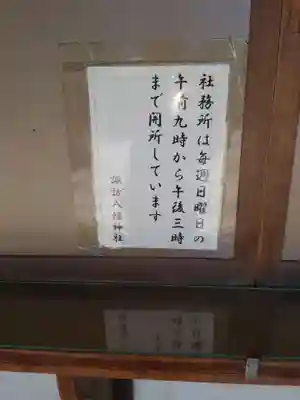 社務所は毎週日曜日の
午前九時から午後三時
まで開所しています
諏訪八幡神社